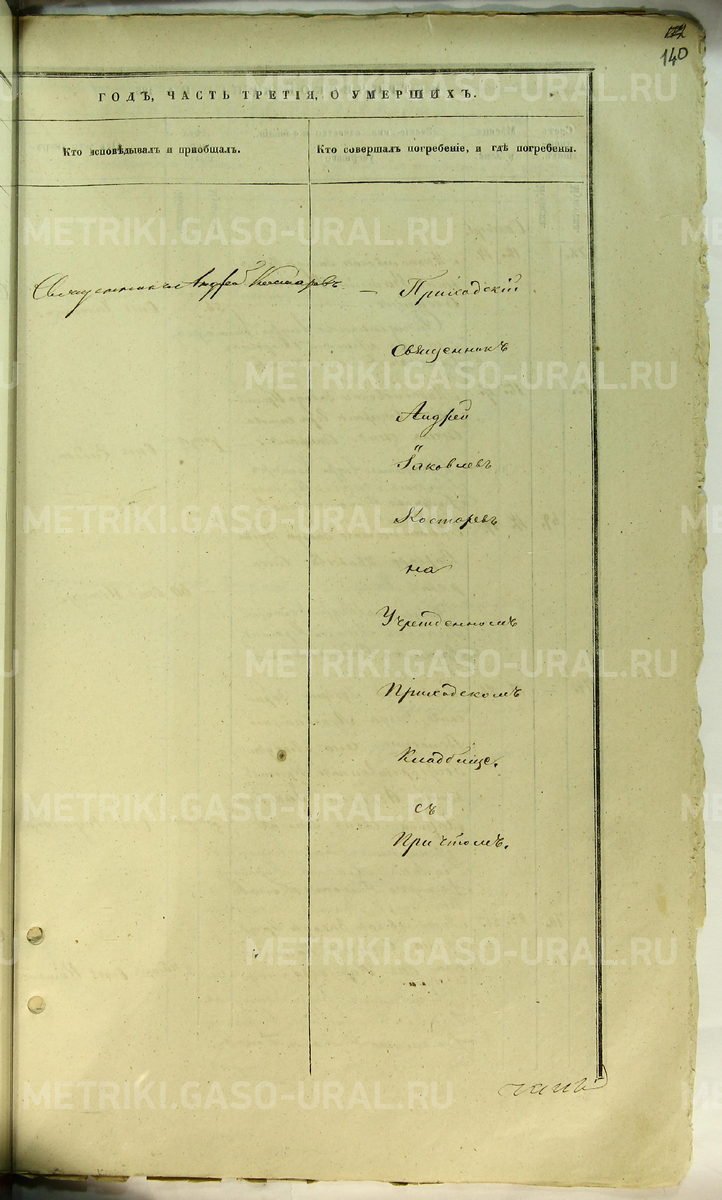 140
ГОДЪ, ЧАСТЬ ТРЕТІЯ, О УМЕРШИХЪ.
Кто исповѣдывалъ и пріобщалъ.
Кто совершалъ погребеніе, и гдѣ погребены.
METRIKI.GASO-URAL.RU
Священникъ Андрей Костаревъ
— Приходскій
METRIKI.GASO-URAL.RU
Священникъ
Андрей
Іаковлевъ
METRIKI.GASO-URAL.RU
Костаревъ
на
Учрежденномъ
METRIKI.GASO-URAL.RU
Приходскомъ
Кладбище.
METRIKI.GASO-URAL.RU
съ
Причтомъ.
METRIKI.GASO-URAL.RU
METRIKI.GASO-URAL.RU